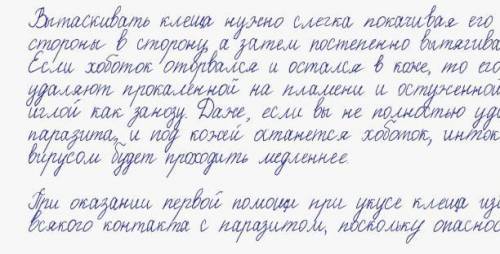 Вытаскивать клеща нужно слегка покачивая его
стороны в сторону, а затем постепенно вытягива
Если хоботок оторвался и остался в коже, то его
удаляют прокаленной на пламени и остуженной
иглой как занозу. Даже, если вы не полностью уда
паразита, и под кожей останется хоботок, инток
вирусом будет проходить медленнее.
При оказании первой помощи при укусе клеща изб
всякого контакта с паразитом, поскольку опаснос